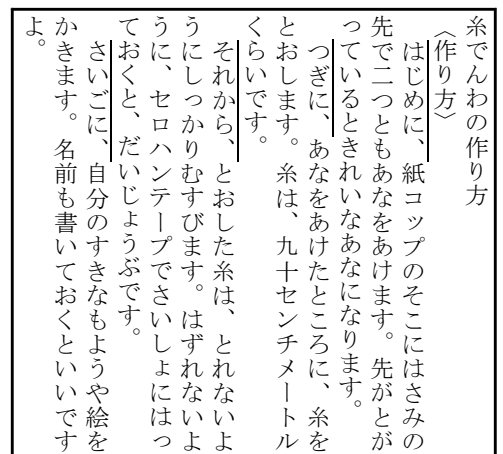 糸でんわの作り方
〈作り方〉
はじめに、紙コップのそこにはさみの
先で二つともあなをあけます。先がとが
っているときれいなあなになります。
つぎに、あなをあけたところに、糸を
とおします。糸は、九十センチメートル
くらいです。
それから、とおした糸は、とれないよ
うにしっかりむすびます。はずれないよ
うに、セロハンテープでさいしょにはっ
ておくと、だいじょうぶです。
さいごに、自分のすきなもようや絵を
かきます。名前も書いておくといいです
よ。